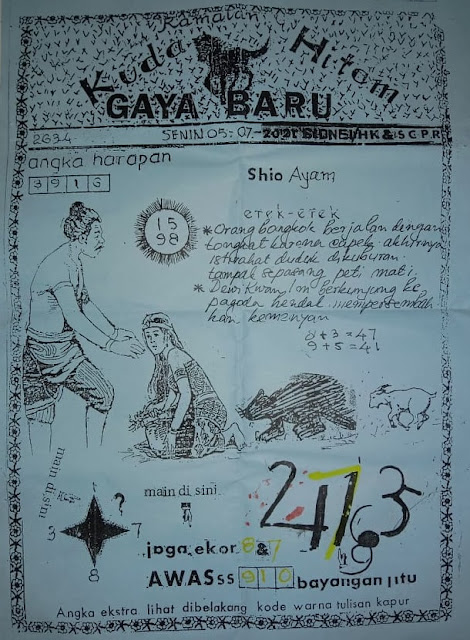 Ramalan
Kuda Hitam
GAYA BARU
2634 SENIN 05-07-2021 SIDNEY/HK & SGPR
angka harapan
3916
Shio Ayam
15
98
erek-erek
* Orang bongkok berjalan dengan
tongkat karena capek akhirnya
istirahat duduk dikuburan
tampak sepasang peti mati.
* Dewi Kwan Im berkunjung ke
pagoda hendak mempersembah
kan kemenyan
8+3=47
9+5=41
main di sini
?
3
7
8
main di sini
jaga ekor 8 & 7
AWASss 910 bayangan jitu
Angka ekstra lihat dibelakang kode warna tulisan kapur